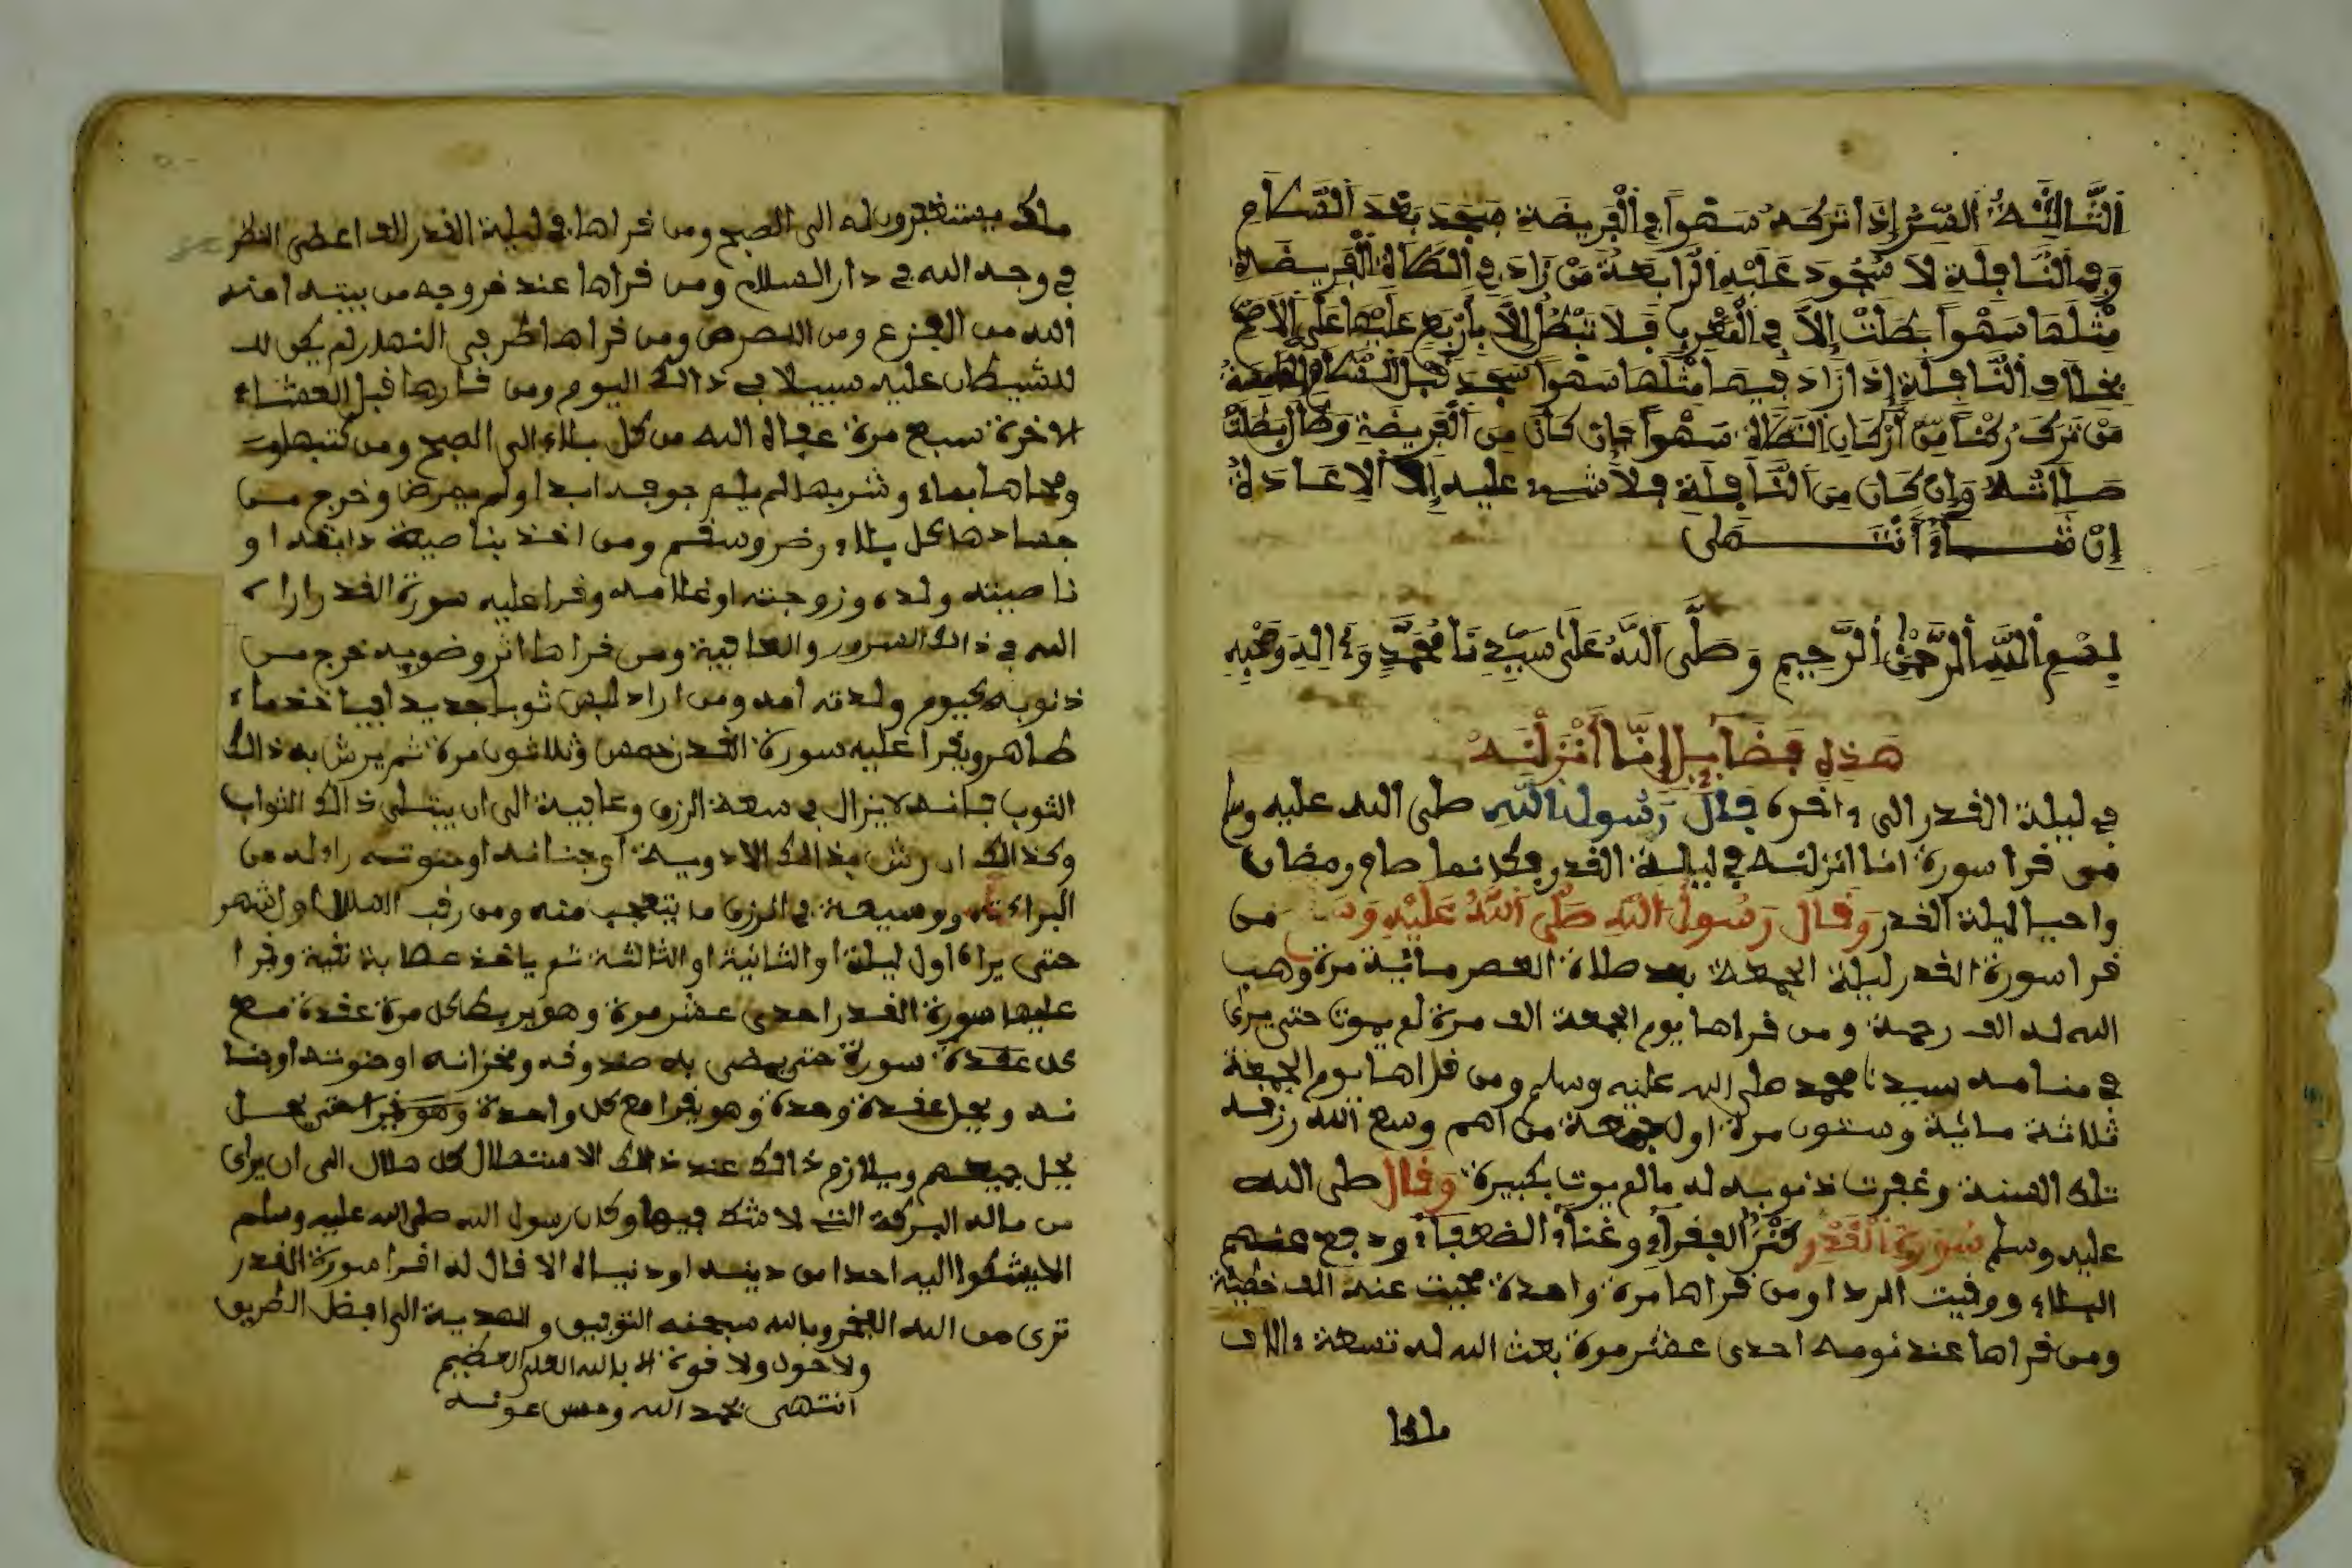 الثَّالِثَةُ السِّرُّ إِذَا تَرَكَهُ سَهْواً فِي الْفَرِيضَةِ سَجَدَ بَعْدَ السَّلَامِ
وَفِي النَّافِلَةِ لَا سُجُودَ عَلَيْهِ الرَّابِعَةُ مَنْ زَادَ فِي الصَّلَاةِ الْفَرِيضَةِ
مِثْلَهَا سَهْواً بَطَلَتْ إِلَّا فِي الْمَغْرِبِ فَلَا تَبْطُلُ إِلَّا بِأَرْبَعٍ عَلَيْهَا عَلَى الْأَصَحِّ
بِخِلَافِ النَّافِلَةِ إِذَا زَادَ فِيهَا مِثْلَهَا سَهْواً سَجَدَ قَبْلَ السَّلَامِ الْخَامِسَةُ
مَنْ تَرَكَ رُكْناً مِنْ أَرْكَانِ الصَّلَاةِ سَهْواً فَإِنْ كَانَ مِنَ الْفَرِيضَةِ وَطَالَ بَطَلَتْ
صَلَاتُهُ وَإِنْ كَانَ مِنَ النَّافِلَةِ فَلَا شيء عليه إِلَّا الْإِعَادَةُ
إِنْ شَاءَ أنْتَهَى
بِسْمِ اللَّهِ الرَّحْمَٰنِ الرَّحِيمِ وَصَلَّى اللَّهُ عَلَى سَيِّدِنَا مُحَمَّدٍ وَءَالِهِ وَصَحْبِهِ
هَذِهِ فَضَائِلُ إِنَّا أَنْزَلْنَهُ
في ليلة القدر الى ءاخره قَالَ رَسُولُ اللَّهِ صلى الله عليه وسلم
من قرا سورة انا انزلنه في ليلة القدر فكانما صام رمضان
واحيا ليلة القدر وَقَالَ رَسُولُ اللَّهِ صَلَّى اللَّهُ عَلَيْهِ وَسَلم من
قرا سورة القدر ليلة الجمعة بعد صلاة العصر مائية مرة وهب
الله له الف رحمة ومن قراها يوم الجمعة الف مرة لم يموت حتى يرى
في منامه سيدنا محمد صلى الله عليه وسلم ومن قراها يوم الجمعة
ثلاثة مائية وستون مرة اول جمعة من وسع الله رزقه
تلك السنة وغفرت ذنوبه له مالم يوت بكبيرة وَقَالَ صلى الله
عليه وسلم سُورَةُ الْقَدْرِ كَنْزُ الفقراء وغناء الضعفاء ودفع عنهم
البلاء ووقيت الردا ومن قراها مرة واحدة محيت عنه الف خطية
ومن قراها عند نومه احدى عشر مرة بعث الله له تسعة ءالاف
ملكا
ملك يستغفرون له الى الصبح ومن قراها في ليلة القدر الف اعطى النظر
في وجه الله في دار السلام ومن قراها عند خروجه من بيته امنه
الله من الفزع ومن البرص ومن قراها طرفي النهار لم يكن له
للشيطان عليه سبيلا في ذالك اليوم ومن قارها قبل العشاء
الاخرة سبع مرة عفاه الله من كل بلاء الى الصبح ومن كتبها
ومحاها بماء وشربها لم يلم ابدا ولم يمرض وخرج من
جسادها كل بلاء وضر وسقم ومن اخذ بناصية دابته او
ناصيته ولده وزوجته او غلامه وقرا عليه سورة القدر
الله في ذالك السرور والعافية ومن قراها اثر وضويه خرج من
ذنوبه كيوم ولدته امه ومن اراد لبس ثوبا جديدا فياخذ ماء
طاهر ويقرا عليه سورة القدر خمس وثلاثون مرة ثم يرش به ذالك
الثوب فانه لا يزال في سعة الرزق وعافية الى ان يبتلى ذالك الثواب
وكذالك ان رش بذالك الادوية او جنانه او حنوته من
البراءته ووسيعة في الرزق ما يتعجب منه ومن رقب الهلال اول شهر
حتى يراه اول ليلة او الثانية او الثالثة ثم ياخذ عصابة نقية وقرا
عليها سورة القدر احدى عشر مرة وهو يربط كل مرة عقدة مع
كل عقدة سورة حتى يمضى به صندوقه ومخزانه او حنوته او جنا
نه ويحل عقدة وحدة وهو يقرا مع كل واحدة وهو يقرا حتى يحل
يحل جميعهم ويلازم ذالك عند ذالك الامتهلال كل هلال الى ان يرى
من ماله البركة التي لا شك فيها وكان رسول الله صلى الله عليه وسلم
لا يشكوا اليه احدا من دينه او دنياه الا قال له اقرا سورة القدر
ترى من الله وبالله سبحنه التوفيق والهدية الى افضل الطريق
ولا حول ولا قوة الا بالله العلي العظيم
انتهى بحمد الله وحسن عونه